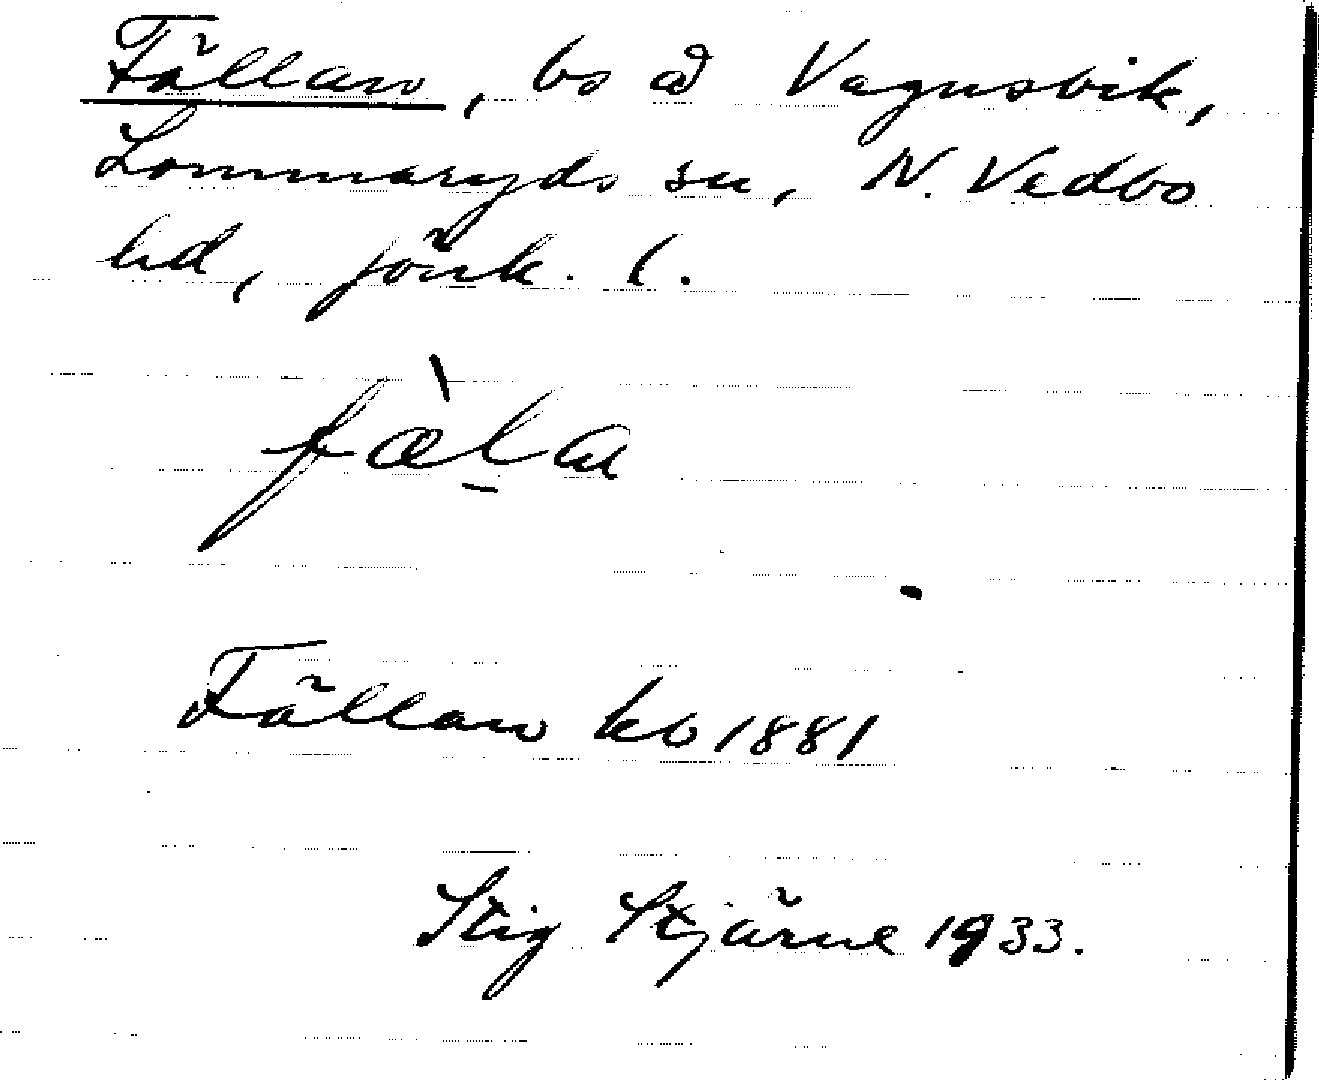 Fällan, bs å Vagnsvik,
Lommaryds sn, N. Vedbo
hd, Jönk. l.
fæ̀l̠a
Fällan kb 1881
Stig Stjärne 1933.